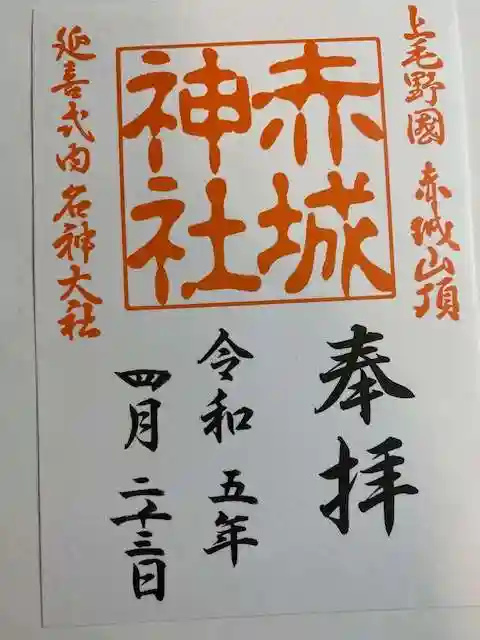 上毛野國 赤城山頂
赤城
神社
延喜式内 名神大社
奉拝
令和 五年
四月 二十三日